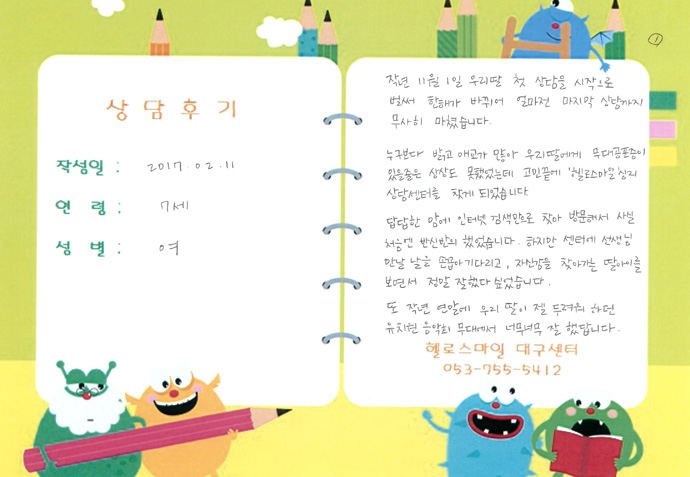 ①
상담후기
작성일 : 2017.02.11
연 령 : 7세
성 별 : 여
작년 11월 1일 우리딸 첫 상담을 시작으로
벌써 한해가 바뀌어 얼마전 마지막 상담까지
무사히 마쳤습니다.
누구보다 밝고 애교가 많아 우리딸에게 무대공포증이
있을줄은 상상도 못했었는데 고민끝에 '헬로스마일' 심리
상담센터를 찾게 되었습니다
답답한 맘에 인터넷 검색만으로 찾아 방문해서 사실
처음엔 반신반의 했었습니다. 하지만 센터에 선생님
만날 날을 손꼽아 기다리고, 자신감을 찾아가는 딸아이를
보면서 정말 잘했다 싶었습니다.
또 작년 연말에 우리 딸이 젤 두려워 하던
유치원 음악회 무대에서 너무너무 잘 했답니다.
헬로스마일 대구센터
053-755-5412